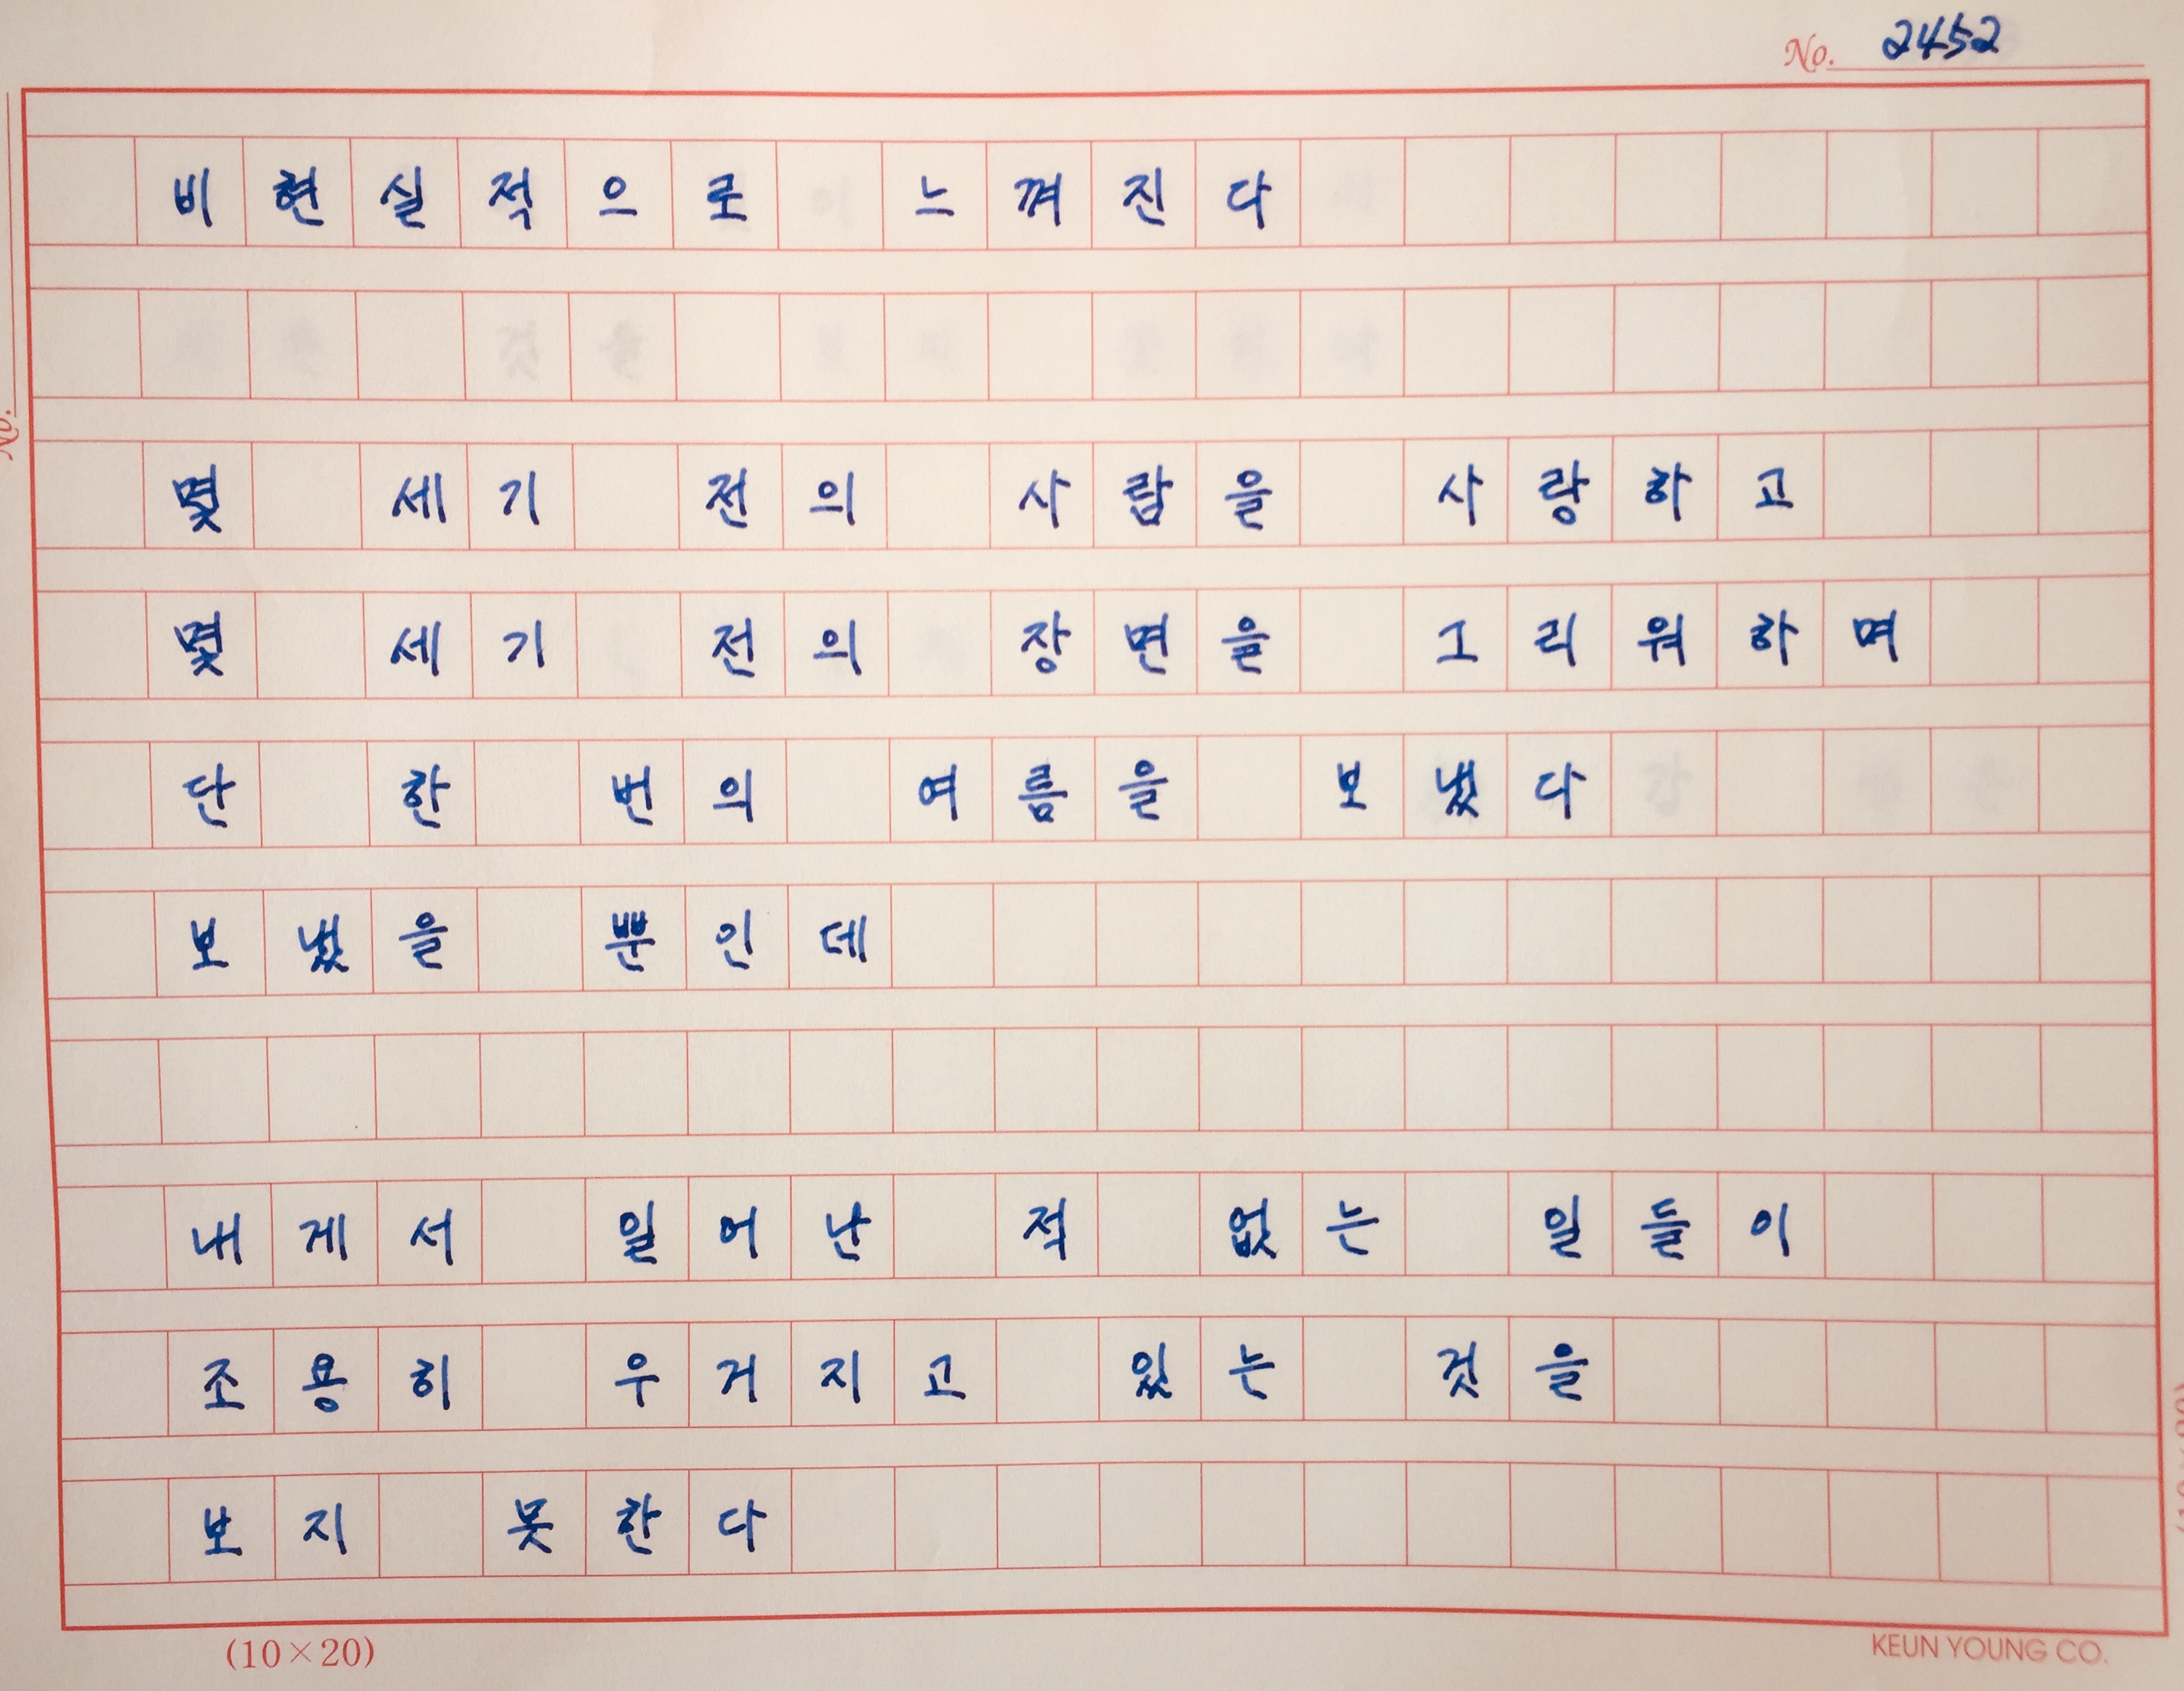 No. 2452
비현실적으로 느껴진다
몇 세기 전의 사람을 사랑하고
몇 세기 전의 장면을 그리워하며
단 한 번의 여름을 보냈다
보냈을 뿐인데
내게서 일어난 적 없는 일들이
조용히 우거지고 있는 것을
보지 못한다
(10×20)
KEUN YOUNG CO.
No.